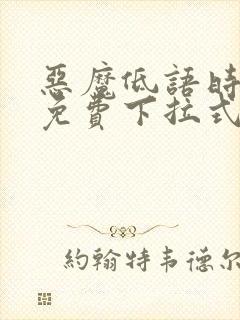 惡魔低語時
免費下拉式
約翰特韦德尔